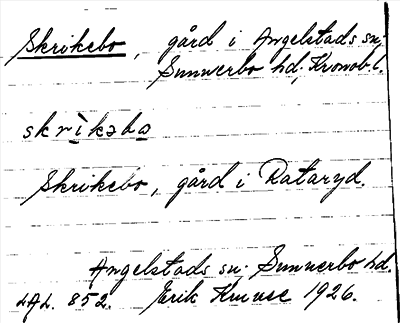 Skrikebo, gård i Angelstads sn.
Sunnerbo hd, Kronob. l.
skrìkəbo
Skrikebo, gård i Rataryd.
Angelstads sn. Sunnerbo hd.
LAL. 852. Erik Kruuse 1926.